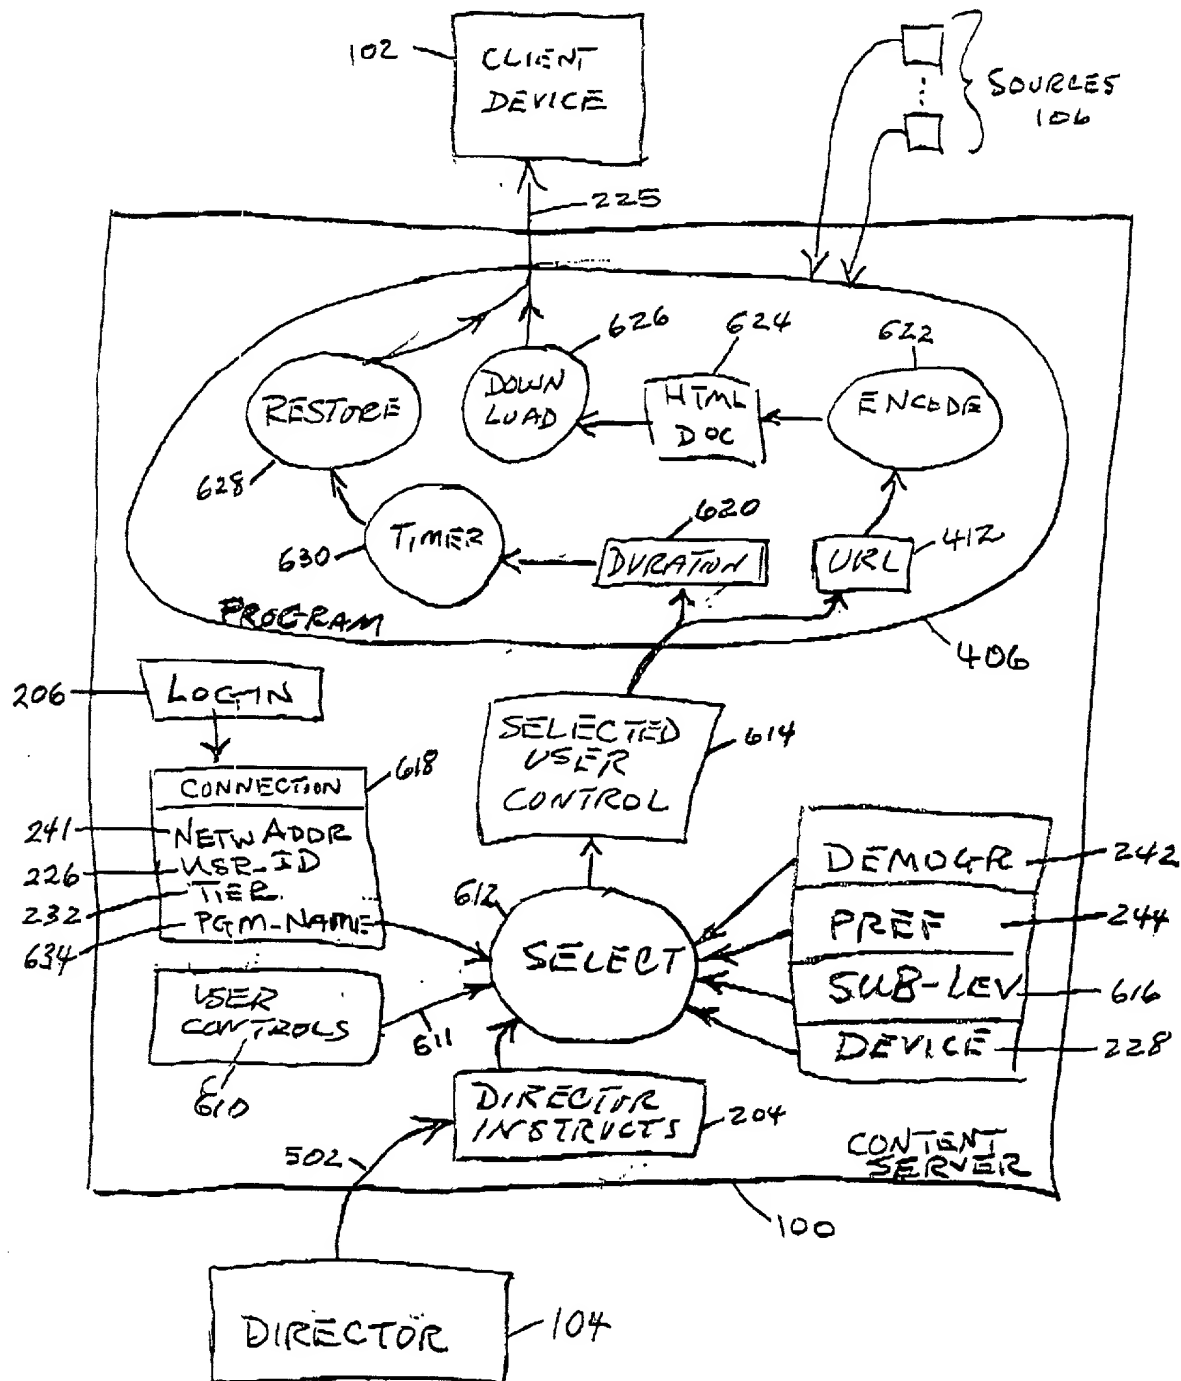 102
CLIENT
DEVICE
SOURCES
106
225
626
624
622
RESTORE
DOWN
LOAD
HTML
DOC
ENCODE
628
620
TIMER
630
DURATION
URL
412
PROGRAM
406
206
LOG-IN
SELECTED
USER
CONTROL
614
CONNECTION
618
241
NETW ADDR
226
USR-ID
232
TIER
634
PGM-NAME
612
SELECT
DEMOGR
242
PREF
244
SUB-LEV
616
DEVICE
228
USER
CONTROLS
610
611
DIRECTOR
INSTRUCTS
204
502
CONTENT
SERVER
100
DIRECTOR
104